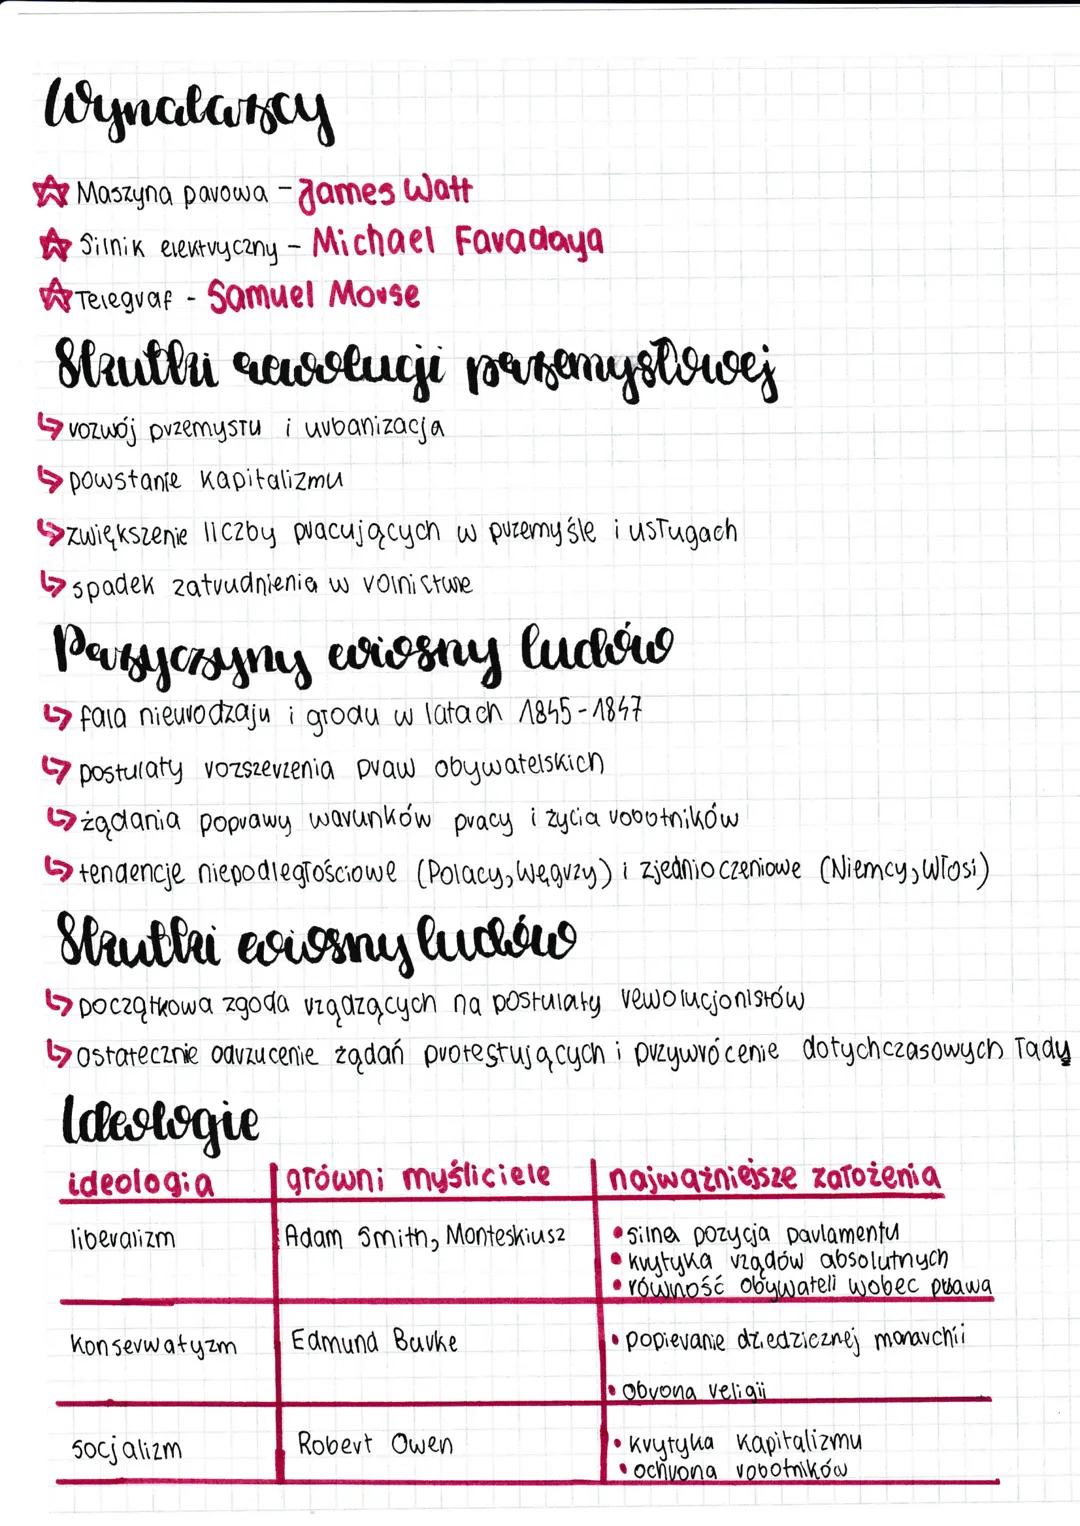 Wynalazcy
Maszyna parowa - James Watt
Silnik elektryczny - Michael Faradaya
Telegraf - Samuel Morse
Skutki rewolucji przemysłowej
rozwój przemysłu i urbanizacja
powstanie kapitalizmu
zwiększenie liczby pracujących w przemyśle i usługach
spadek zatrudnienia w rolnictwie
Przyczyny wiosny ludów
fala nieurodzaju i głodu w latach 1845-1847
postulaty rozszerzenia praw obywatelskich
żądania poprawy warunków pracy i życia robotników
tendencje niepodległościowe (Polacy, Węgrzy) i zjednioczeniowe (Niemcy, Włosi)
Skutki wiosny ludów
początkowa zgoda rządzących na postulaty rewolucjonistów
ostatecznie odrzucenie żądań protestujących i przywrócenie dotychczasowych rządy
Ideologie
ideologia główni myśliciele najważniejsze założenia
liberalizm Adam Smith, Monteskiusz • silna pozycja parlamentu
• krytyka rządów absolutnych
• równość obywateli wobec prawa
konserwatyzm Edmund Burke • popieranie dziedzicznej monarchii
• obrona religii
socjalizm Robert Owen • krytyka kapitalizmu
• ochrona robotników